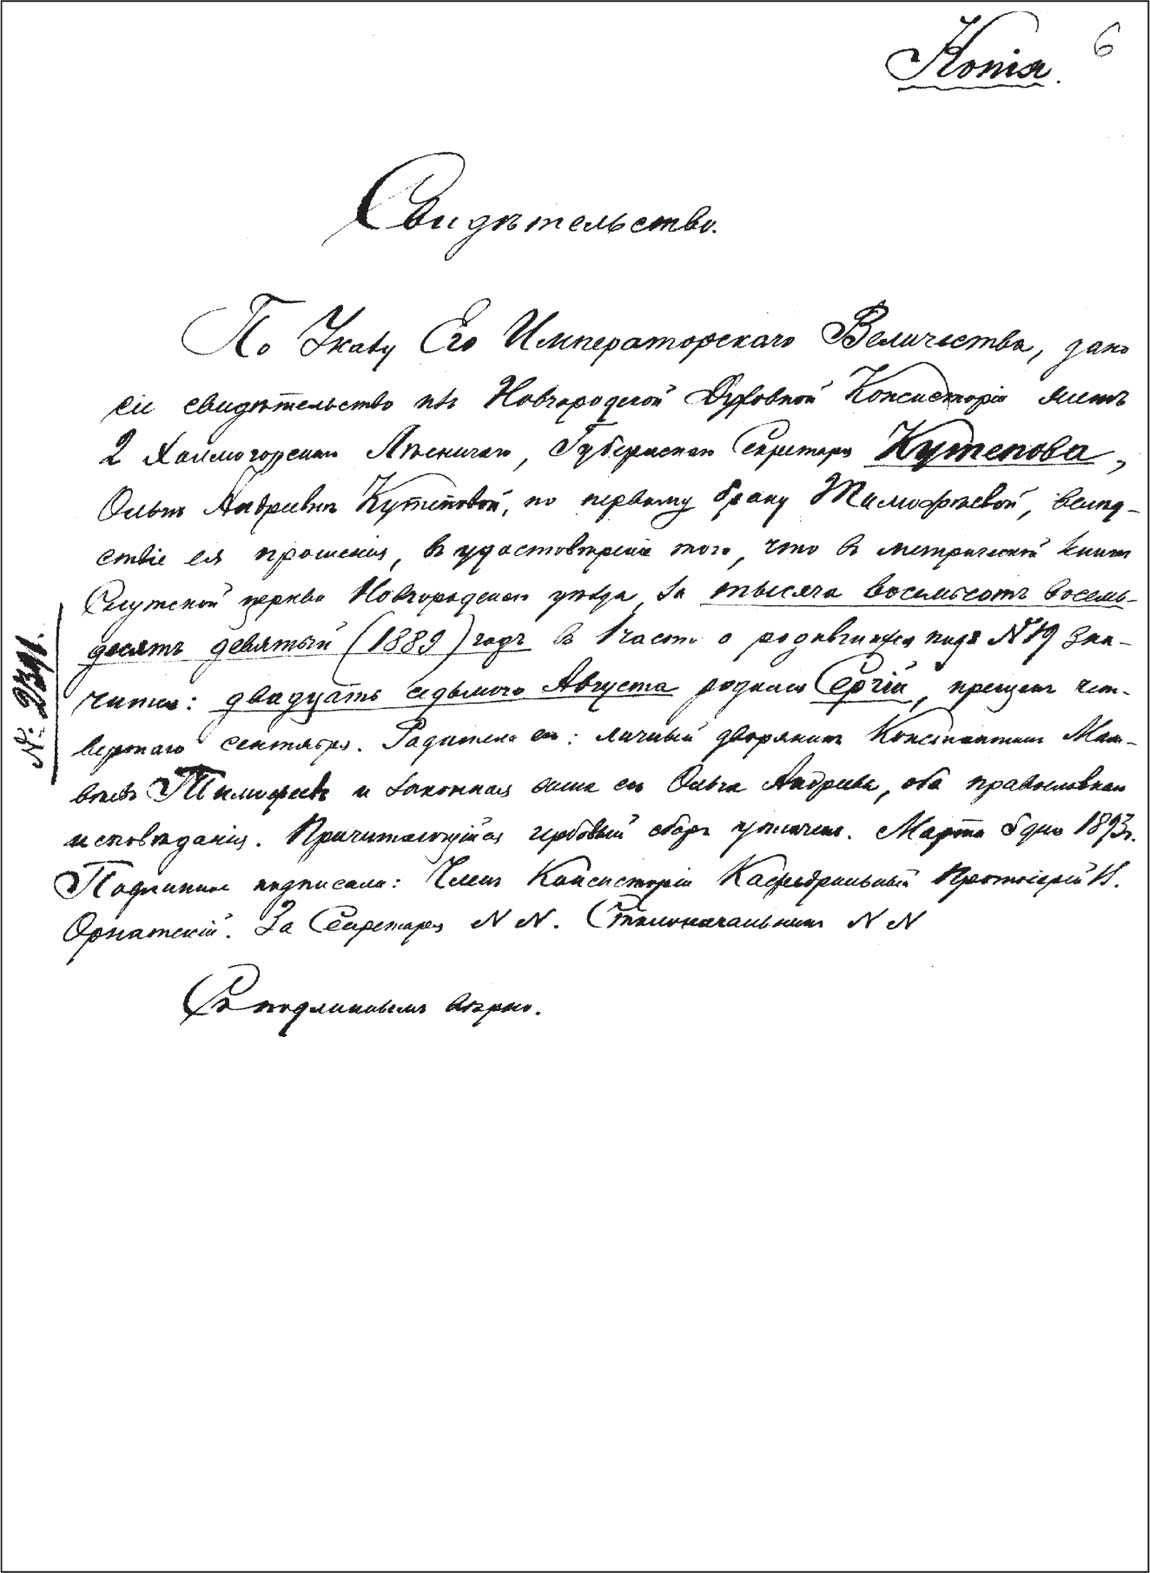 Копія. 6
Свидѣтельство.
По Указу Его Императорскаго Величества, дано
сіе свидѣтельство изъ Новгородской Духовной Консисторіи женѣ
2 Холмогорскаго Лѣсничаго, Губернскаго Секретаря Кутепова,
Ольгѣ Андреевнѣ Кутеповой, по первому браку Тимофѣевой, вслѣд-
ствіе ея прошенія, въ удостовѣреніе того, что въ метрической книгѣ
церкви Новгородскаго уѣзда за тысяча восемьсотъ восемь-
десятъ девятый (1889) годъ въ 1 части о родившихся подъ № 19 зна-
чится: двадцать седьмого Августа родился Сергій, крещенъ чет-
вертаго сентября. Родители его: личный дворянинъ Константинъ Мат-
вѣевъ Тимофеевъ и законная жена его Ольга Андреева, оба православнаго
исповѣданія. Причитающійся гербовый сборъ уплаченъ. Марта дня 1893 г.
Подлинное подписали: Членъ Консисторіи Кафедральный Протоіерей
Орнатскій. За Секретаря N N. Столоначальникъ N N
Съ подлиннымъ вѣрно.
№ 2391.